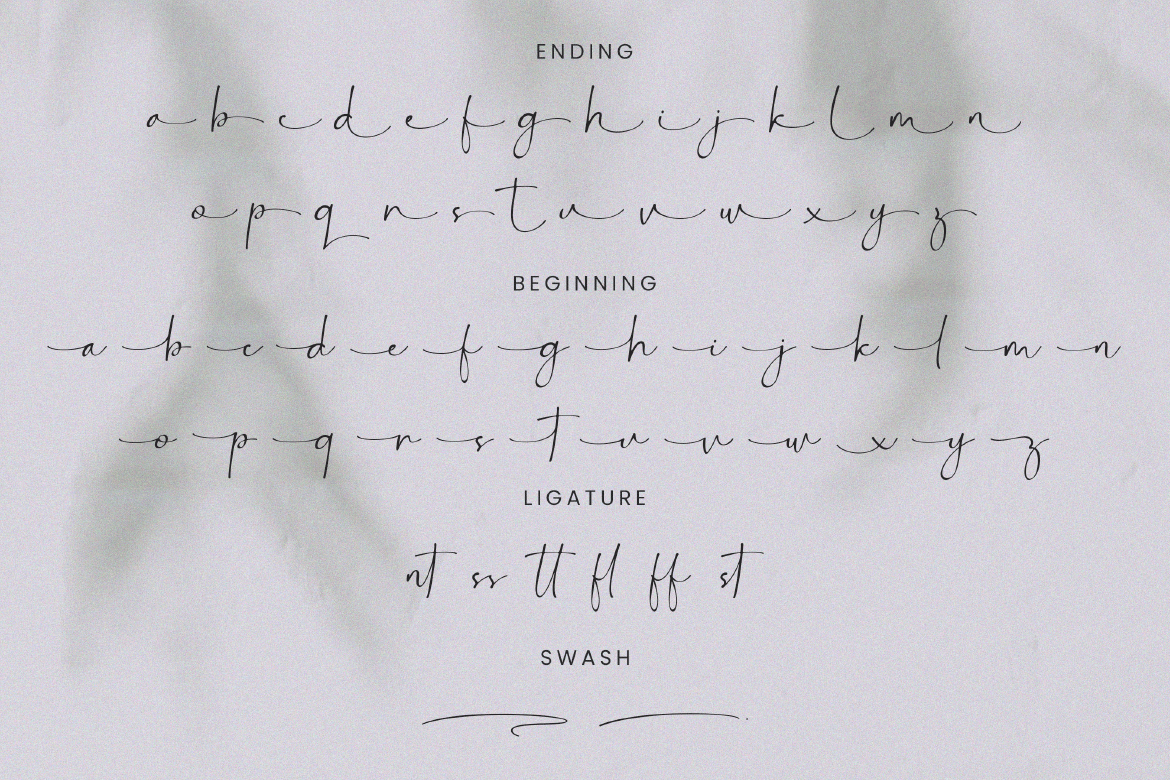 ENDING
a b c d e f g h i j k l m n
o p q r s t u v w x y z
BEGINNING
a b c d e f g h i j k l m n
o p q r s t u v w x y z
LIGATURE
nt ss tt fl ff st
SWASH